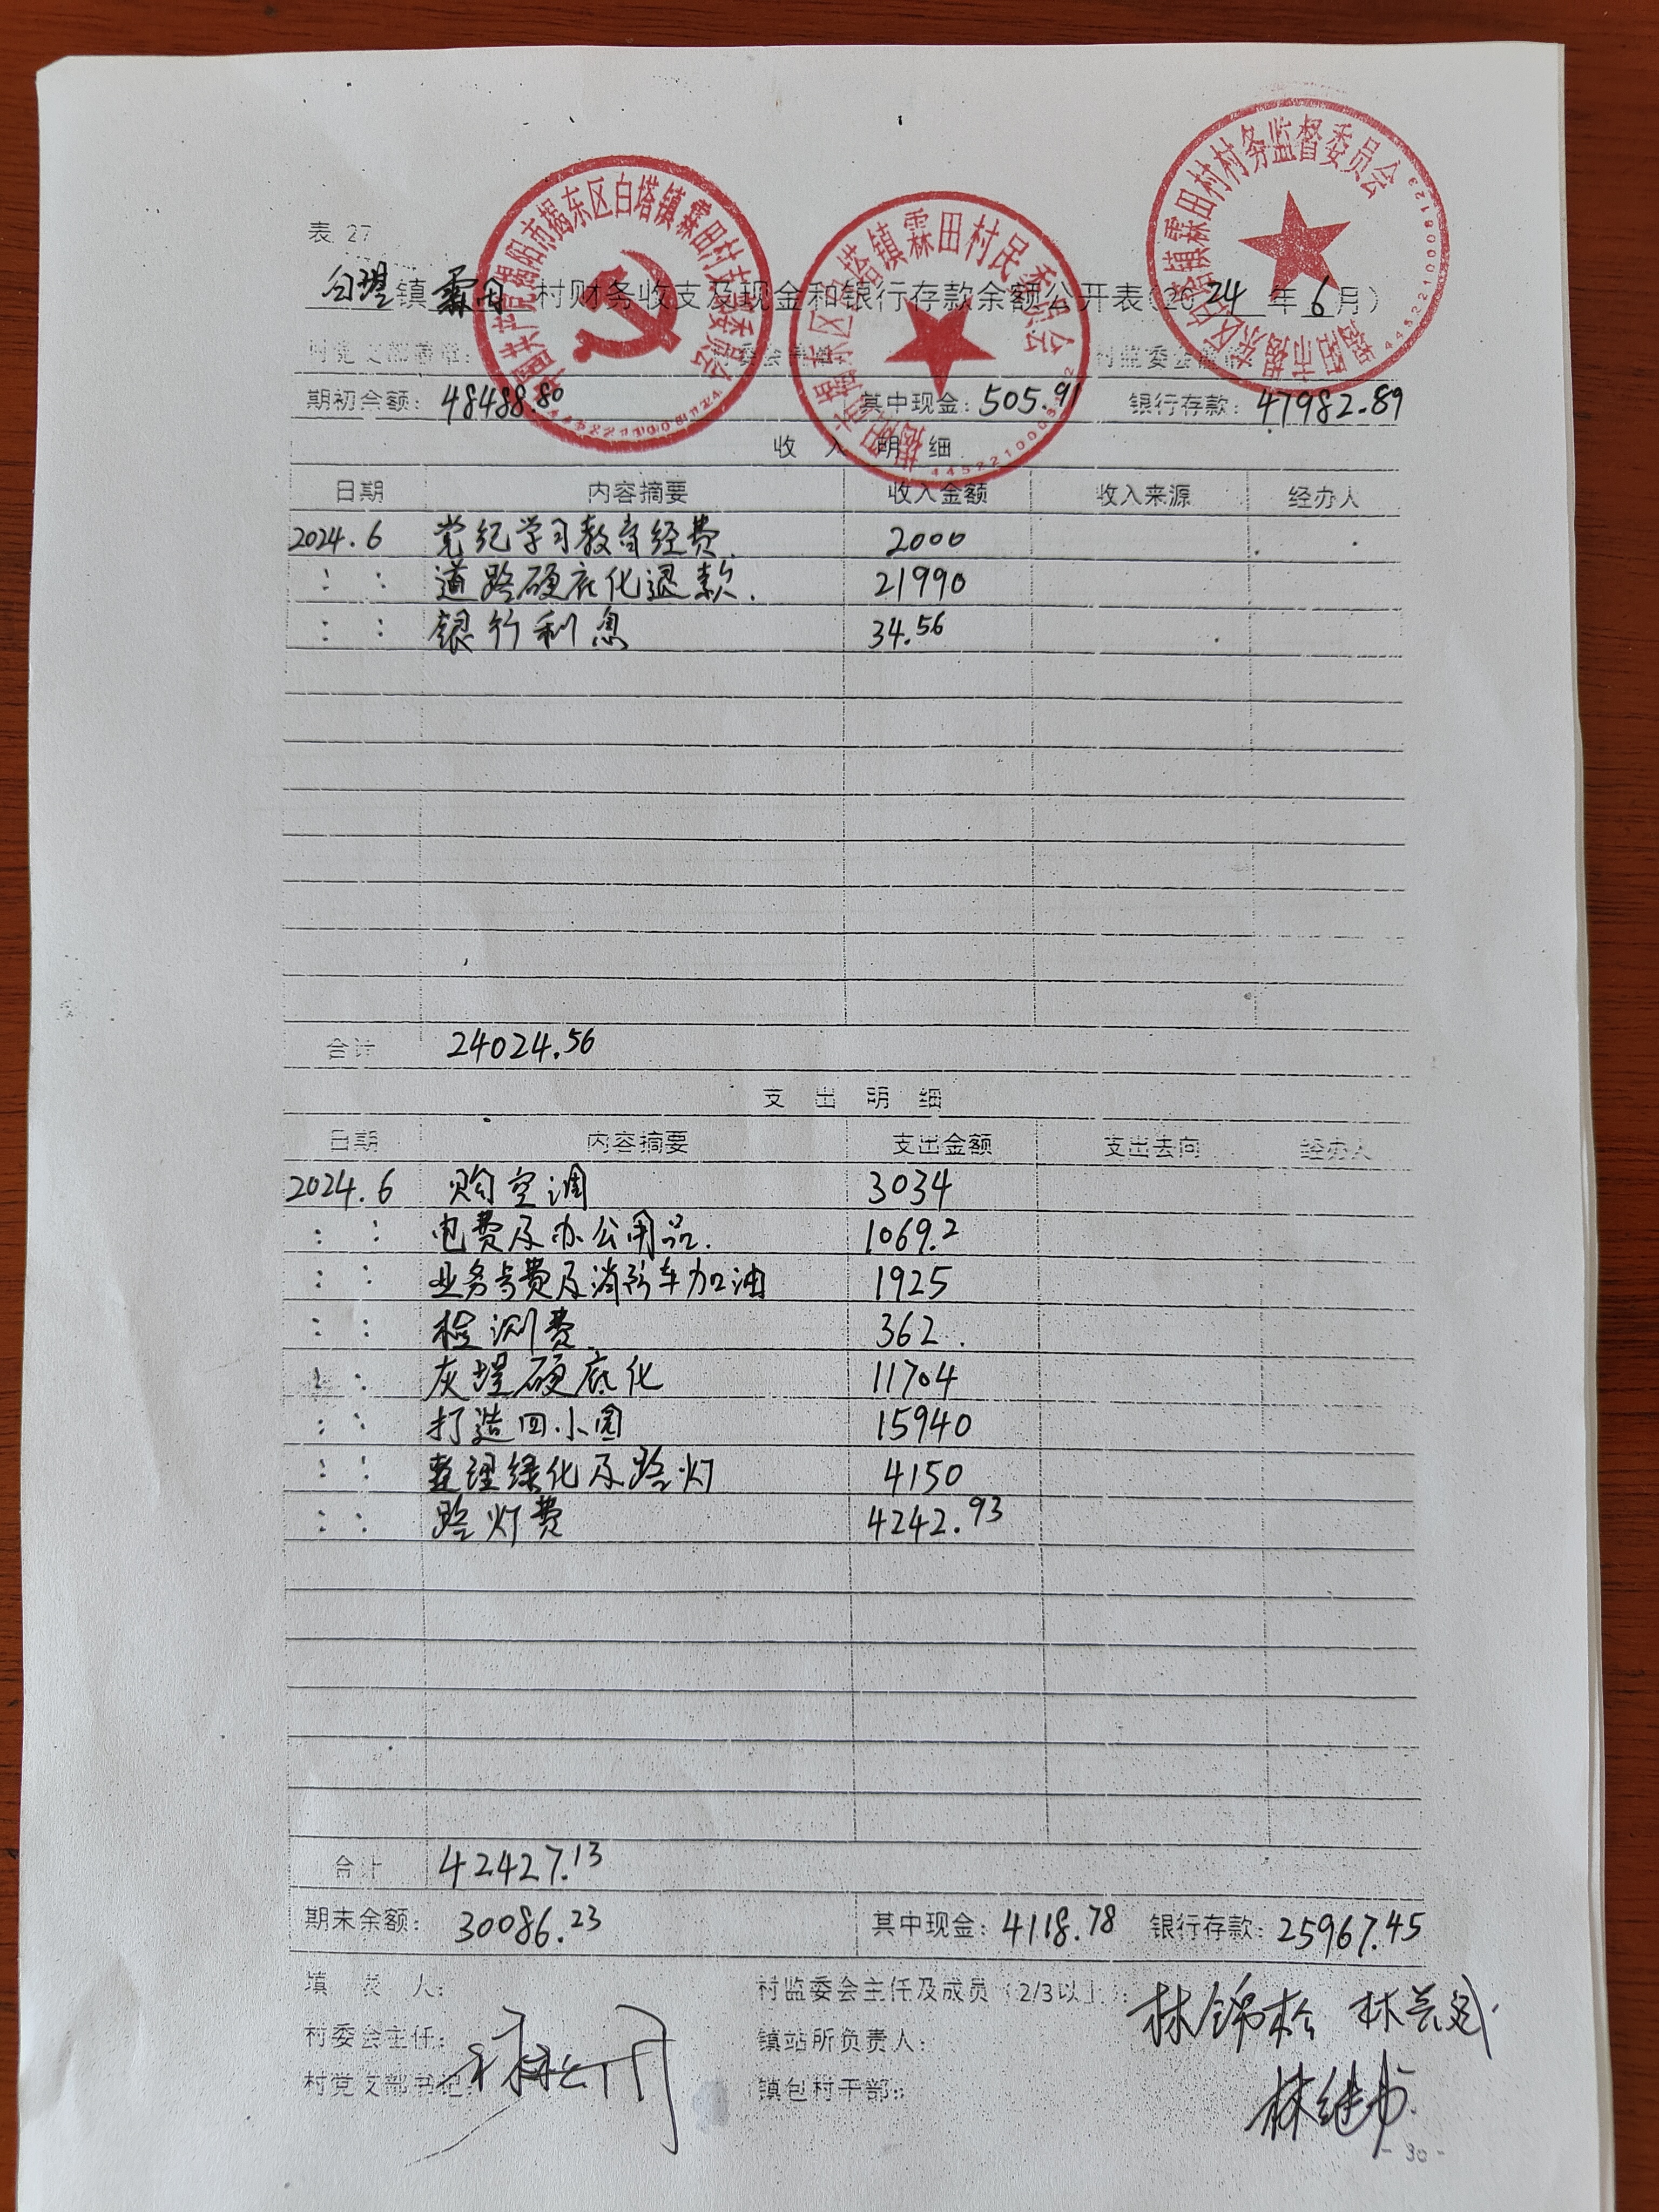 表 27
白塔镇 霖田 村财务收支及现金和银行存款余额公开表(2024年6月)
村党支部盖章:
期初余额: 48488.80 其中现金: 505.91 银行存款: 47982.89
收入明细
日期 内容摘要 收入金额 收入来源 经办人
2024.6 党纪学习教育经费. 2000
: : 道路硬底化退款. 21990
: : 银行利息 34.56
合计 24024.56
支出明细
日期 内容摘要 支出金额 支出去向 经办人
2024.6 购空调 3034
: : 电费及办公用品. 1069.2
: : 业务费及消防车加油 1925
: : 检测费 362.
: : 灰埕硬底化 11704
: : 打造四小园 15940
: : 整理绿化及路灯 4150
: : 路灯费 4242.93
合计 42427.13
期末余额: 30086.23 其中现金: 4118.78 银行存款: 25967.45
填表人: 村监委会主任及成员(2/3以上): 林锦松
村委会主任: 镇站所负责人:
村党支部书记: 镇包村干部:
- 30 -
中国共产党揭阳市揭东区白塔镇霖田村支部委员会
揭阳市揭东区白塔镇霖田村民委员会
揭阳市揭东区白塔镇霖田村村务监督委员会
4452210008123